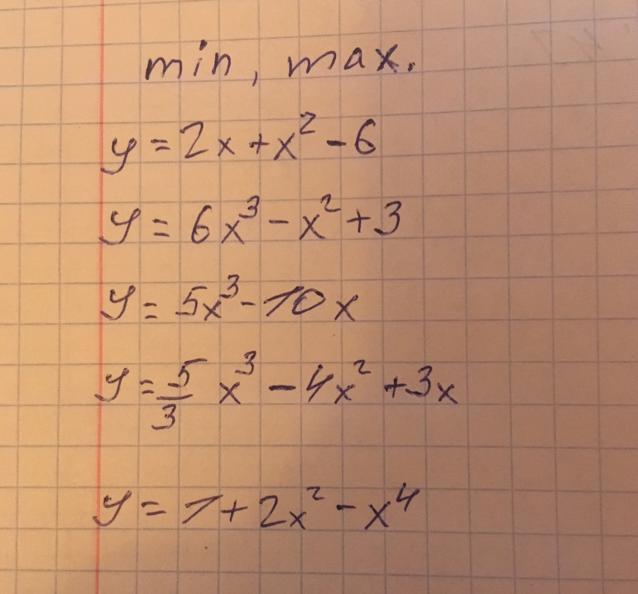 min, max.
y = 2x + x² - 6
y = 6x³ - x² + 3
y = 5x³ - 10x
y = 5/3 x³ - 4x² + 3x
y = 1 + 2x² - x⁴